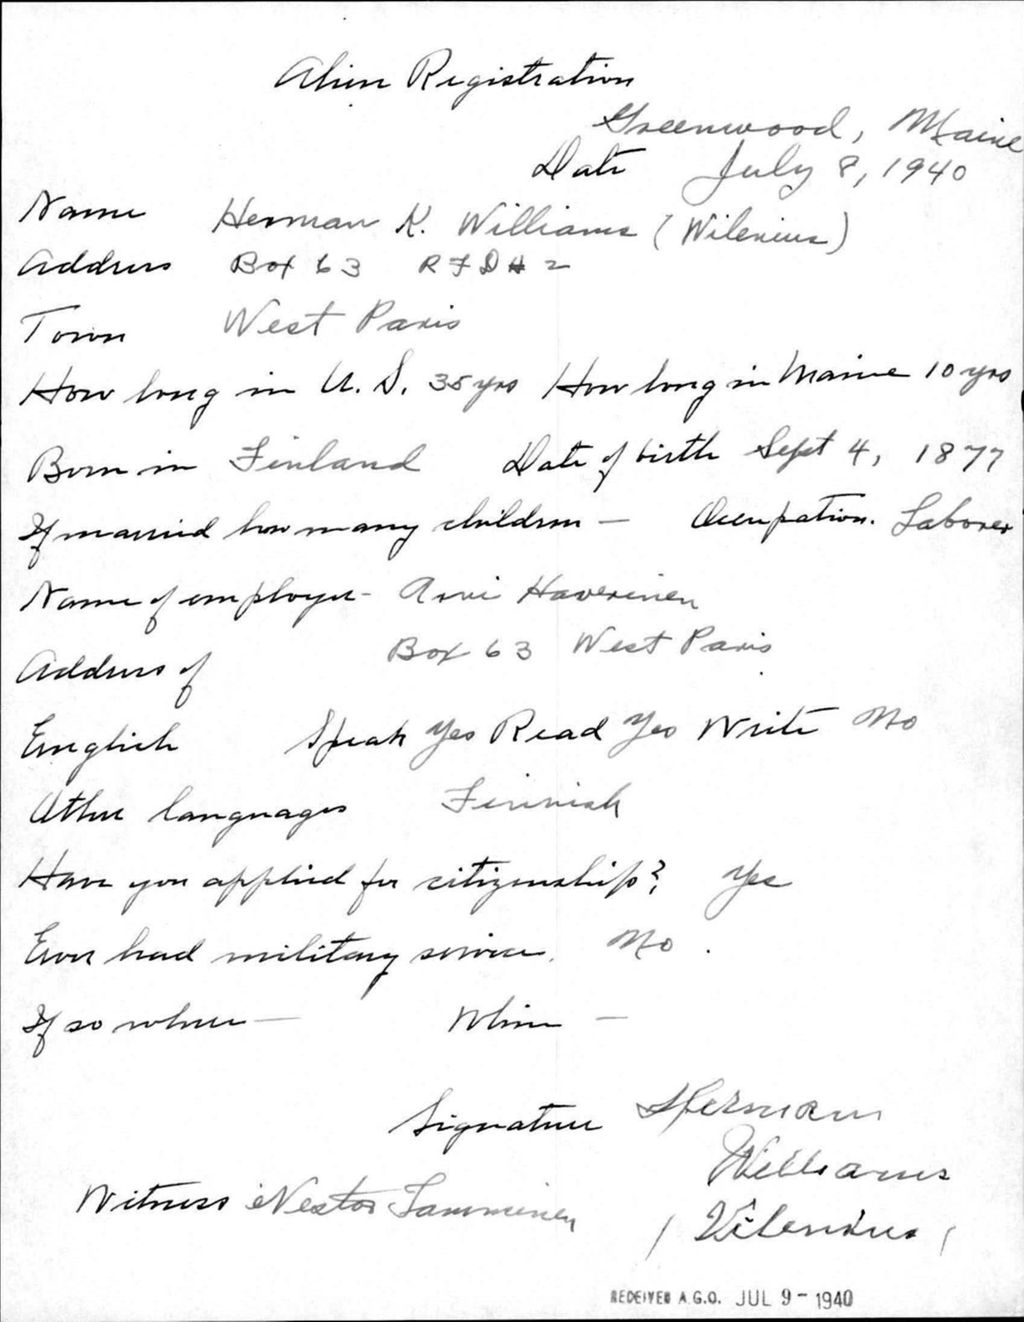 Alien Registration
Greenwood, Maine
Date July 8, 1940
Name Herman K. Williams (Wilenius)
Address Box 63 RFD # 2
Town West Paris
How long in U. S. 35 yrs How long in Maine 10 yrs
Born in Finland Date of birth Sept 4, 1877
If married how many children — Occupation. Laborer
Name of employer - Arvi Haverinen
Box 63 West Paris
Address of
English Speak Yes Read Yes Write No
Other languages Finnish
Have you applied for citizenship? Yes
Ever had military service. No.
If so where — When —
Signature Herman
Williams
(Vilenius)
Witness Nestor Tamminen
RECEIVED A.G.O. JUL 9 - 1940